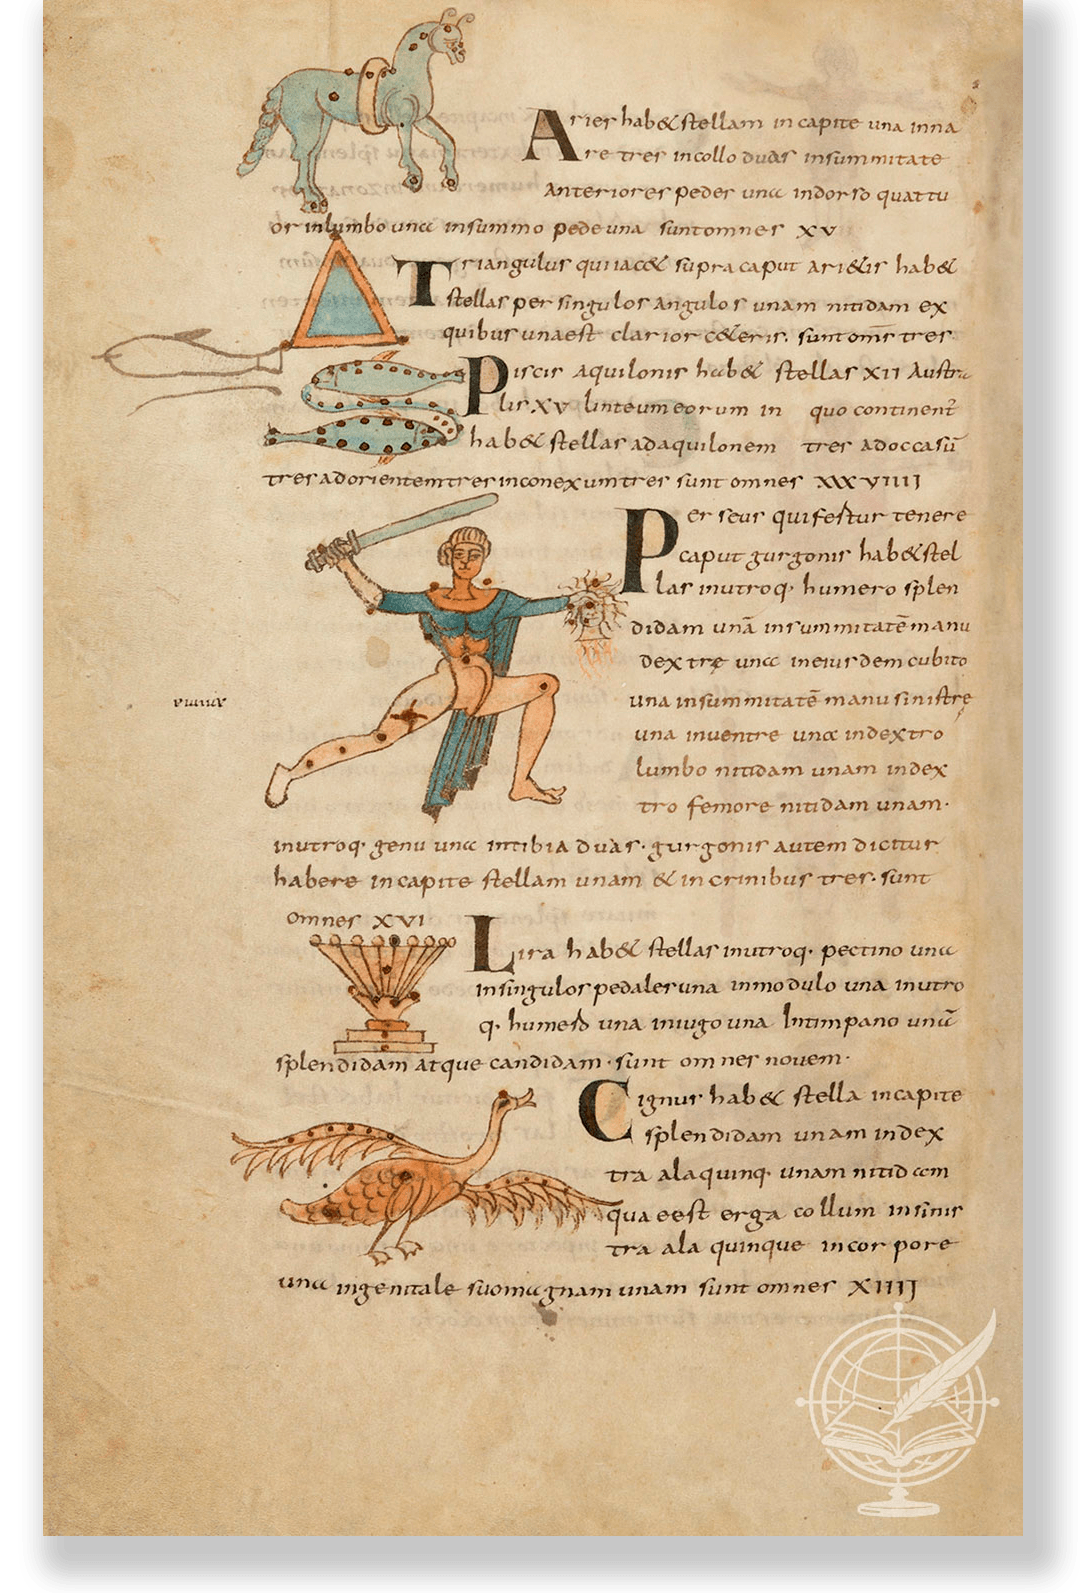 Aries hab& stellam in capite una inna
re tres in collo duas in summitate
anteriores pedes una in dorso quattu
or in lumbo una in summo pede una sunt omnes XV
Triangulus qui iac& supra caput ari&is hab&
stellas per singulos angulos unam nitidam ex
quibus una est clarior c&eris. sunt om̄s tres
Piscis aquilonis hab& stellas XII Austra
lis XV linteum eorum in quo continent̄
hab& stellas ad aquilonem tres ad occasū
tres ad orientem tres in conexum tres sunt omnes XXXVIIII
Perseus qui fertur tenere
caput gurgonis hab& stel
las in utroq· humero splen
didam unā in summitatē manu
dextre una in eiusdem cubito
una in summitatē manu sinistre
una in ventre una in dextro
lumbo nitidam unam in dex
tro femore nitidam unam·
in utroq· genu una in tibia duas· gurgonis autem dicitur
habere in capite stellam unam & in crinibus tres· sunt
omnes XVI
Lira hab& stellas in utroq· pectino una
in singulos pedales una in modulo una in utro
q· humero una in iugo una In timpano unā
splendidam atque candidam· sunt omnes novem·
Cignus hab& stella in capite
splendidam unam in dex
tra ala quinq· unam nitidam
quae est erga collum in sinis
tra ala quinque in corpore
una in genitale suo magnam unam sunt omnes XIIII